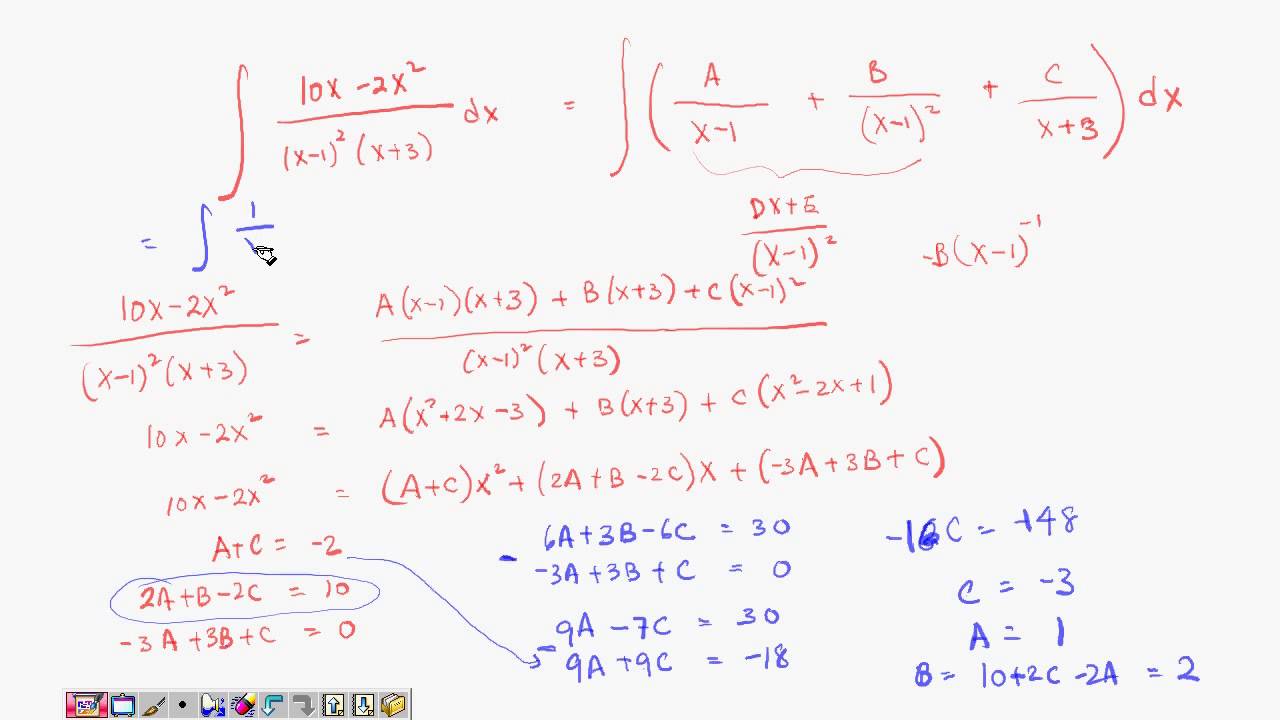 ∫ (10x - 2x²)/((x-1)²(x+3)) dx = ∫ ( A/(x-1) + B/(x-1)² + C/(x+3) ) dx
(Dx+E)/(x-1)²
-B(x-1)⁻¹
= ∫ 1/
(10x-2x²)/((x-1)²(x+3)) = (A(x-1)(x+3) + B(x+3) + C(x-1)²)/((x-1)²(x+3))
10x-2x² = A(x²+2x-3) + B(x+3) + C(x²-2x+1)
10x-2x² = (A+C)x² + (2A+B-2C)x + (-3A+3B+C)
A+C = -2
2A+B-2C = 10
-3A+3B+C = 0
6A+3B-6C = 30
- -3A+3B+C = 0
9A-7C = 30
- 9A+9C = -18
-16C = +48
C = -3
A = 1
B = 10+2C-2A = 2